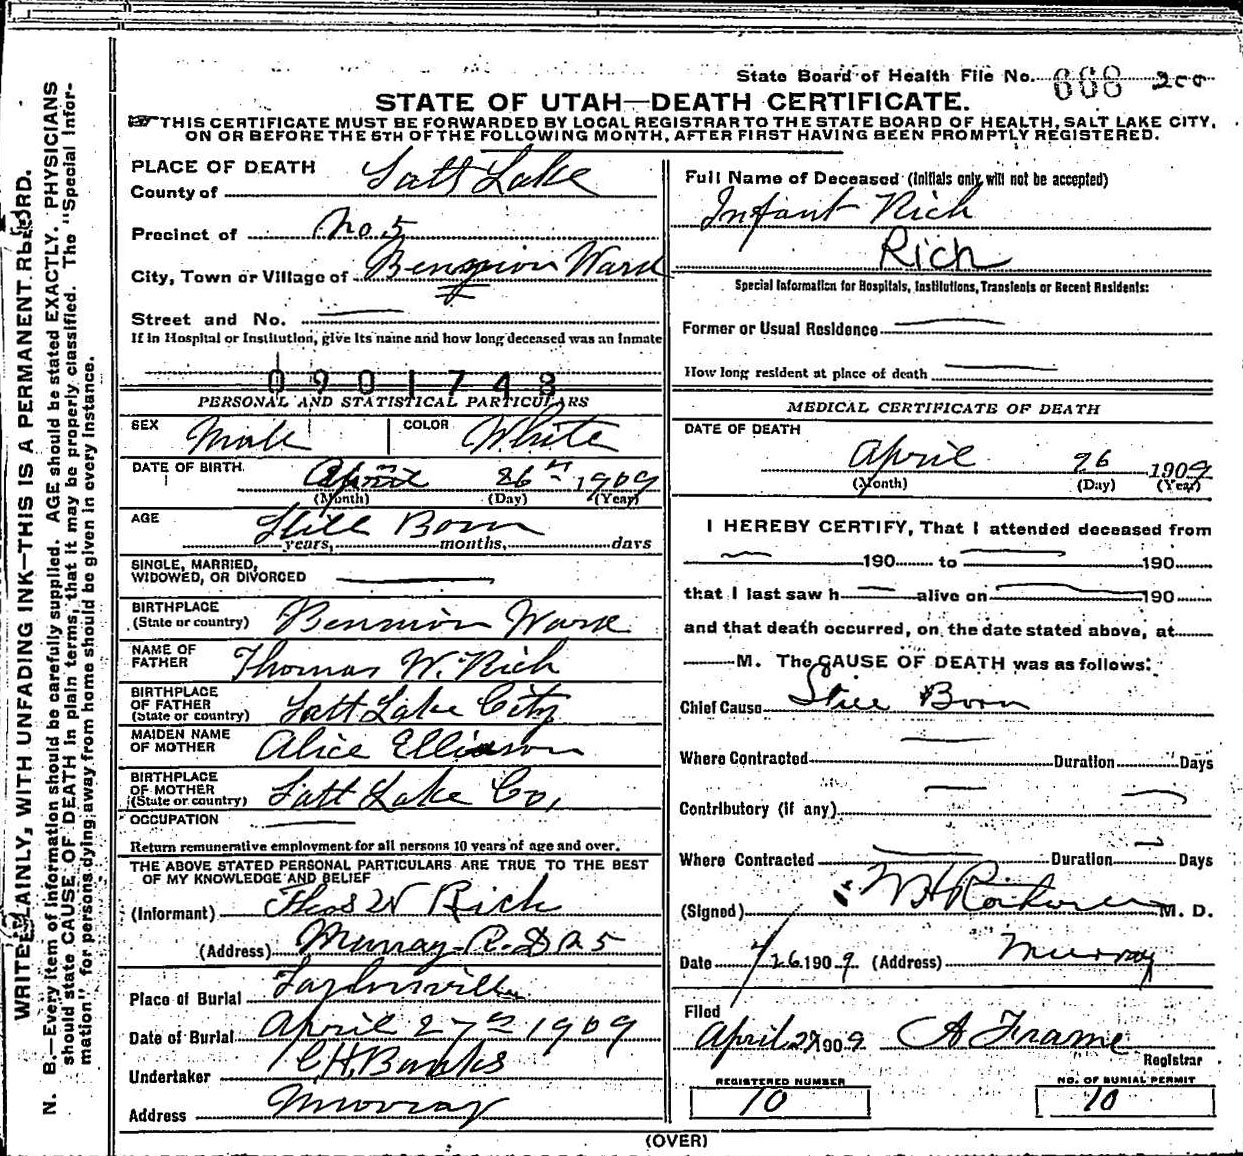 State Board of Health File No. 668 200
STATE OF UTAH—DEATH CERTIFICATE.
THIS CERTIFICATE MUST BE FORWARDED BY LOCAL REGISTRAR TO THE STATE BOARD OF HEALTH, SALT LAKE CITY,
ON OR BEFORE THE 5TH OF THE FOLLOWING MONTH, AFTER FIRST HAVING BEEN PROMPTLY REGISTERED.
WRITE PLAINLY, WITH UNFADING INK—THIS IS A PERMANENT RECORD.
N. B.—Every item of information should be carefully supplied. AGE should be stated EXACTLY. PHYSICIANS
should state CAUSE OF DEATH in plain terms, that it may be properly classified. The "Special Infor-
mation" for persons dying away from home should be given in every instance.
PLACE OF DEATH
County of Salt Lake
Precinct of No. 5
City, Town or Village of Bennion Ward
Street and No. —
If in Hospital or Institution, give its name and how long deceased was an inmate
0901743
PERSONAL AND STATISTICAL PARTICULARS
SEX Male COLOR White
DATE OF BIRTH April 26th 1909
(Month) (Day) (Year)
AGE Still Born
years, months, days
SINGLE, MARRIED,
WIDOWED, OR DIVORCED —
BIRTHPLACE
(State or country) Bennion Ward
NAME OF
FATHER Thomas W. Rich
BIRTHPLACE
OF FATHER
(State or country) Salt Lake City
MAIDEN NAME
OF MOTHER Alice Elliason
BIRTHPLACE
OF MOTHER
(State or country) Salt Lake Co,
OCCUPATION —
Return remunerative employment for all persons 10 years of age and over.
THE ABOVE STATED PERSONAL PARTICULARS ARE TRUE TO THE BEST
OF MY KNOWLEDGE AND BELIEF
(Informant) Thos W Rich
(Address) Murray R.D. 5
Place of Burial Taylorsville
Date of Burial April 27th 1909
Undertaker C.H. Banks
Address Murray
Full Name of Deceased (Initials only will not be accepted)
Infant Rich
Rich
Special Information for Hospitals, Institutions, Transients or Recent Residents:
Former or Usual Residence —
How long resident at place of death —
MEDICAL CERTIFICATE OF DEATH
DATE OF DEATH
April 26 1909
(Month) (Day) (Year)
I HEREBY CERTIFY, That I attended deceased from
— 190 to — 190
that I last saw h — alive on — 190
and that death occurred, on the date stated above, at
M. The CAUSE OF DEATH was as follows:
Chief Cause Still Born
Where Contracted — Duration Days
Contributory (if any) —
Where Contracted — Duration — Days
(Signed) M. D.
Date 4/26 1909 (Address) Murray
Filed
April 27 1909 A Frame
Registrar
REGISTERED NUMBER NO. OF BURIAL PERMIT
10 10
(OVER)